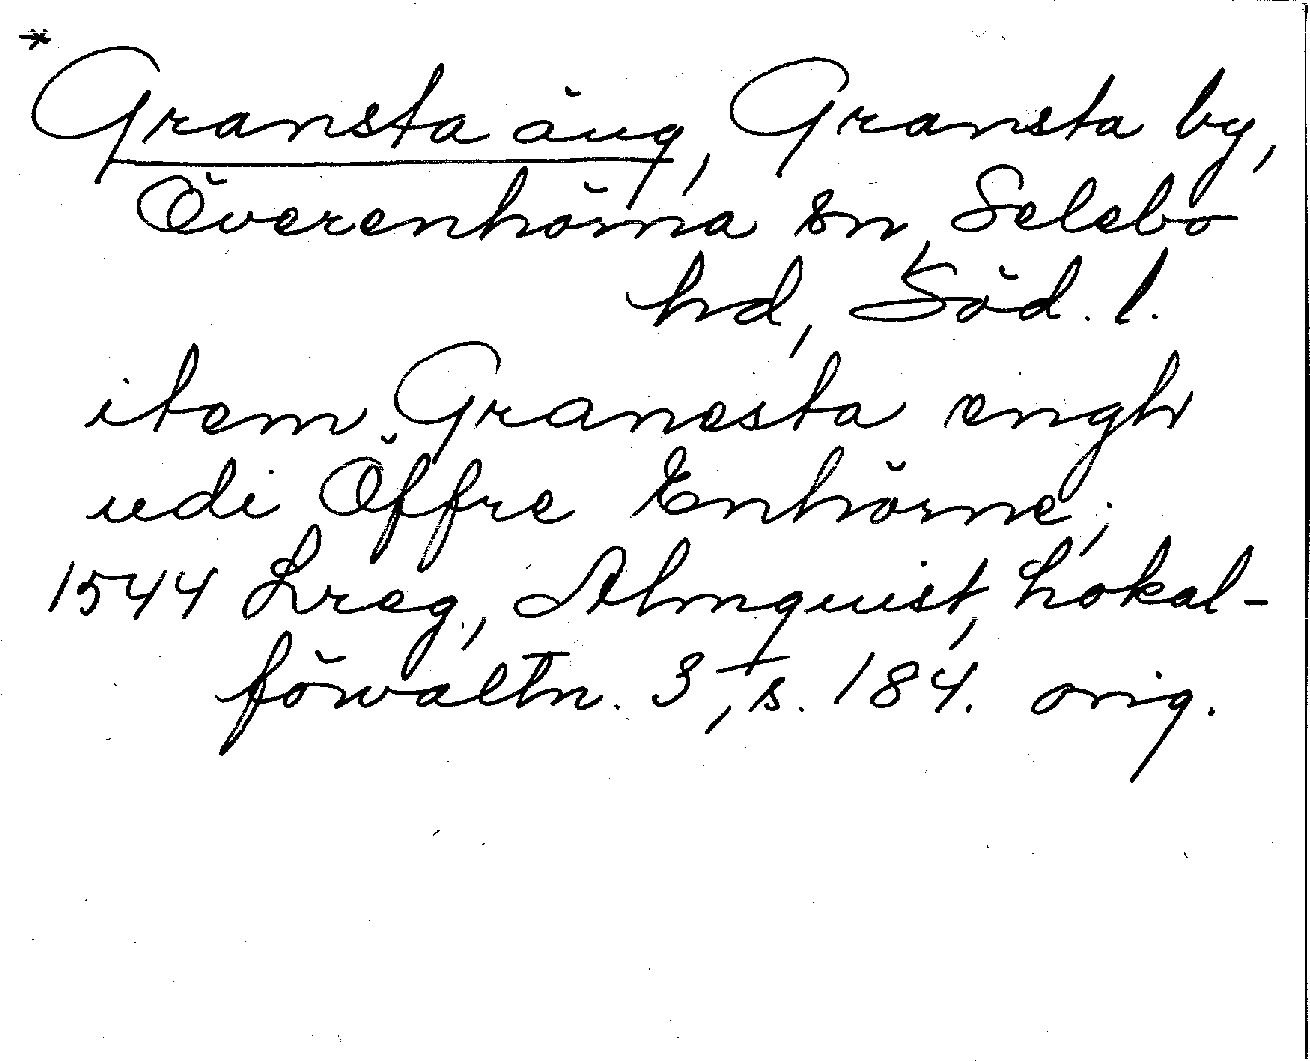 * Gransta äng, Gransta by,
Överenhörna sn, Selebo
hd, Söd. l.
item Granesta engh
udi Öffre Enhörne;
1544 Lreg., Almquist, Lokal-
förvaltn. 3, s. 184. orig.